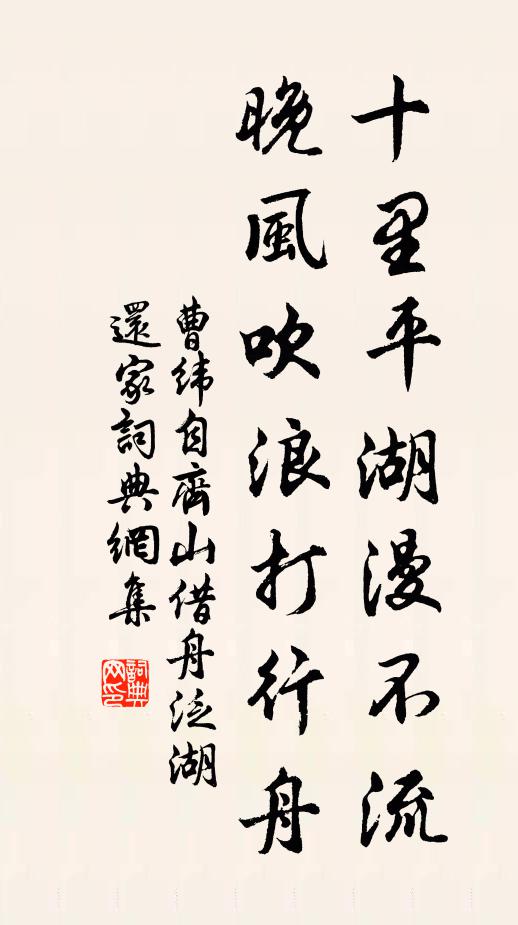 十里平湖漫不流
晚風吹浪打行舟
曹緯自齊山借舟泛湖
還家詞典網集
詞典网印